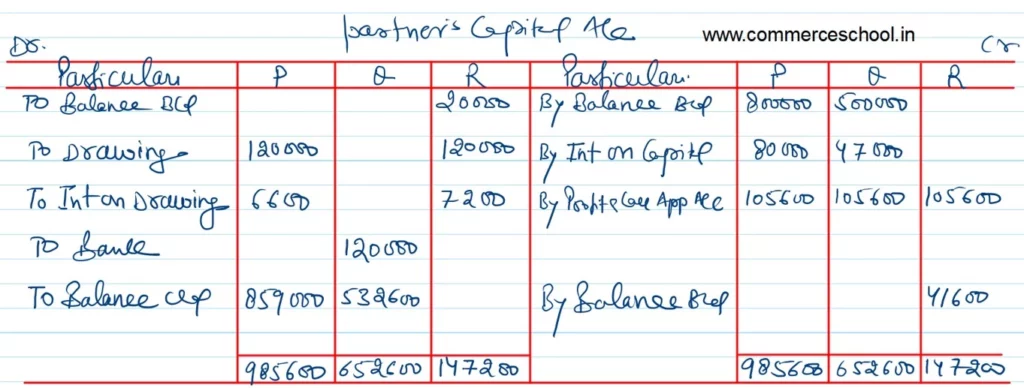 partner's Capital A/c
www.commerceschool.in
Dr. Cr.
Particulars P Q R Particulars P Q R
To Balance B/d 20000 By Balance B/d 800000 500000
To Drawing 120000 120000 By Int on Capital 80000 47000
To Int on Drawing 6600 7200 By Profit & Loss App A/c 105600 105600 105600
To Bank 120000
To Balance c/d 859000 532600 By Balance B/d 41600
985600 652600 147200 985600 652600 147200